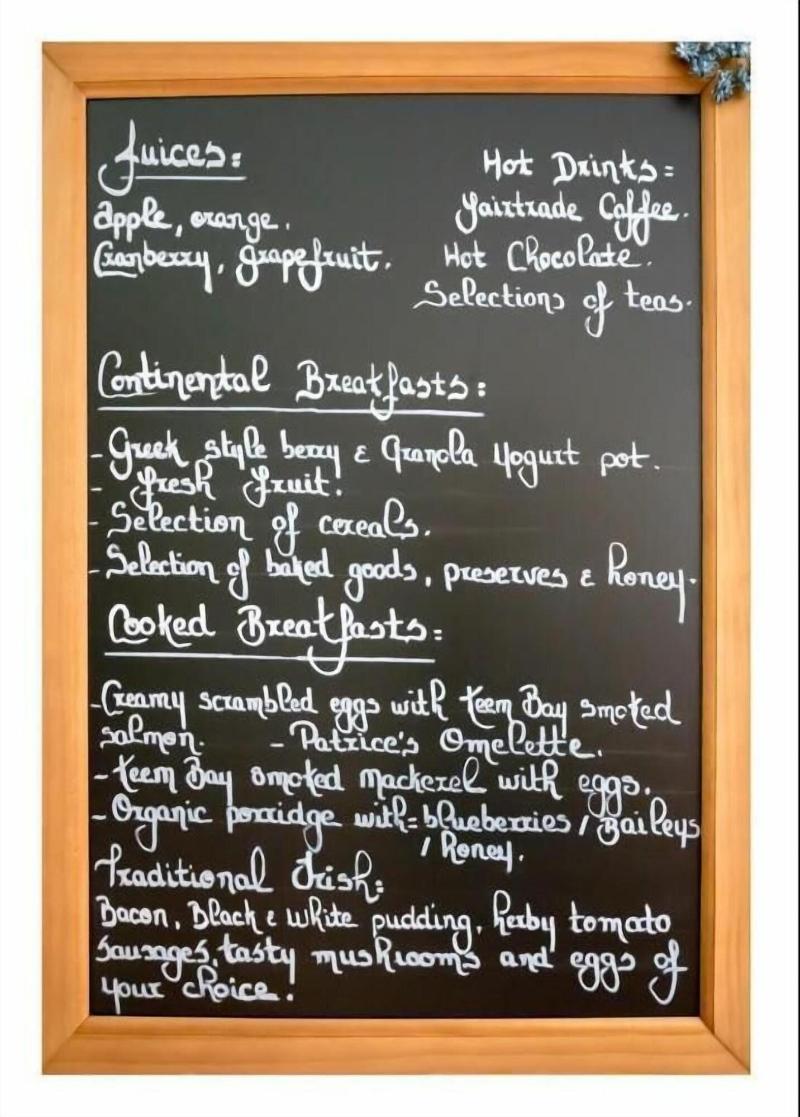 Juices:
apple, orange.
Cranberry, grapefruit.
Hot Drinks:
Fairtrade Coffee.
Hot Chocolate.
Selections of teas.
Continental Breakfasts:
- Greek style berry & Granola Yogurt pot.
- Fresh Fruit.
- Selection of cereals.
- Selection of baked goods, preserves & honey.
Cooked Breakfasts:
- Creamy scrambled eggs with Keem Bay smoked
salmon. - Patrice's Omelette.
- Keem Bay smoked mackerel with eggs.
- Organic porridge with: blueberries / Baileys
/ Honey.
Traditional Irish:
Bacon, Black & white pudding, herby tomato
sausages, tasty mushrooms and eggs of
your choice!